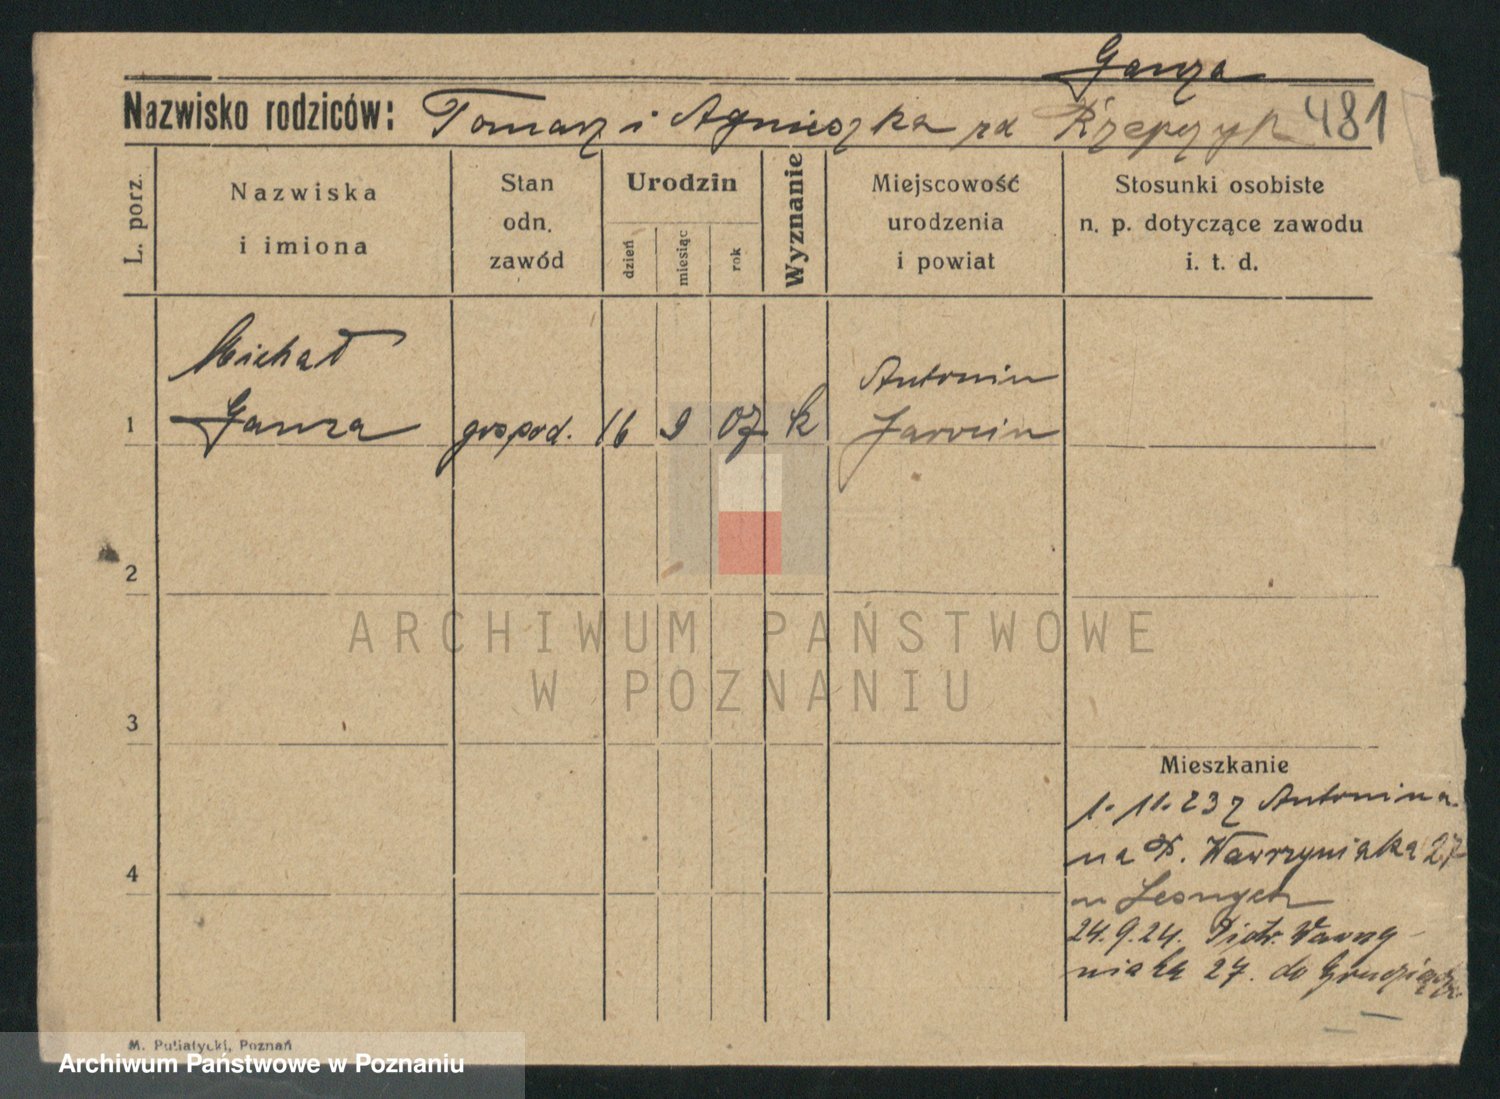 Ganza
Nazwisko rodziców: Tomasz i Agnieszka zd Krzepczyk 481
L. porz.
Nazwiska
i imiona
Stan
odn.
zawód
Urodzin
dzień
miesiąc
rok
Wyznanie
Miejscowość
urodzenia
i powiat
Stosunki osobiste
n. p. dotyczące zawodu
i. t. d.
Michał Antonin
1 Ganza gospod. 16 9 07 k Jarocin
2
ARCHIWUM PAŃSTWOWE
W POZNANIU
3
Mieszkanie
1. 11. 23 z Antonina
na P. Wawrzyniaka 27
4
u Lesnych
24. 9. 24. Piotr. Wawrzy-
niaka 27. do Grudziądza
M. Putiatycki, Poznań
Archiwum Państwowe w Poznaniu